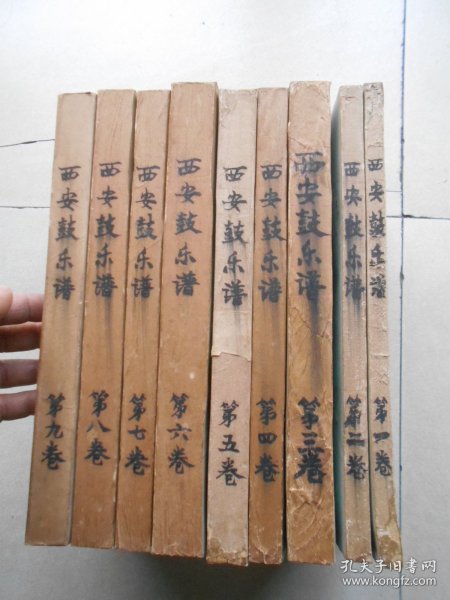 西安鼓乐谱 第九卷
西安鼓乐谱 第八卷
西安鼓乐谱 第七卷
西安鼓乐谱 第六卷
西安鼓乐谱 第五卷
西安鼓乐谱 第四卷
西安鼓乐谱 第三卷
西安鼓乐谱 第二卷
西安鼓乐谱 第一卷
孔夫子旧书网
www.kongfz.com